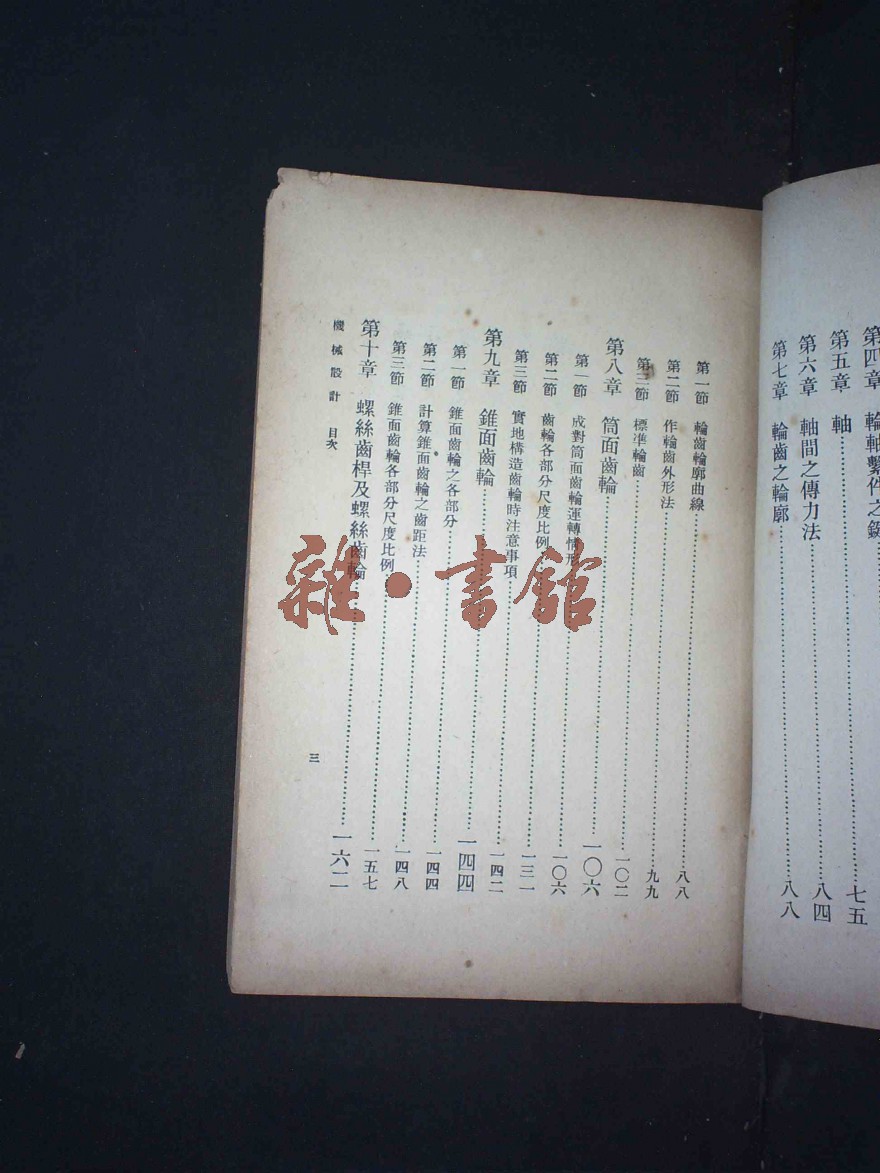 第四章 輪軸繫件之
第五章 軸……七五
第六章 軸間之傳力法……八四
第七章 輪齒之輪廓……八八
第一節 輪齒輪廓曲線……八八
第二節 作輪齒外形法……九九
第三節 標準輪齒……一〇二
第八章 筒面齒輪……一〇六
第一節 成對筒面齒輪運轉情形……一〇六
第二節 齒輪各部分尺度比例……一三一
第三節 實地構造齒輪時注意事項……一四二
第九章 錐面齒輪……一四四
第一節 錐面齒輪之各部分……一四四
第二節 計算錐面齒輪之齒距法……一四八
第三節 錐面齒輪各部分尺度比例……一五七
第十章 螺絲齒桿及螺絲齒輪……一六二
機械設計 目次
三
雜·書館